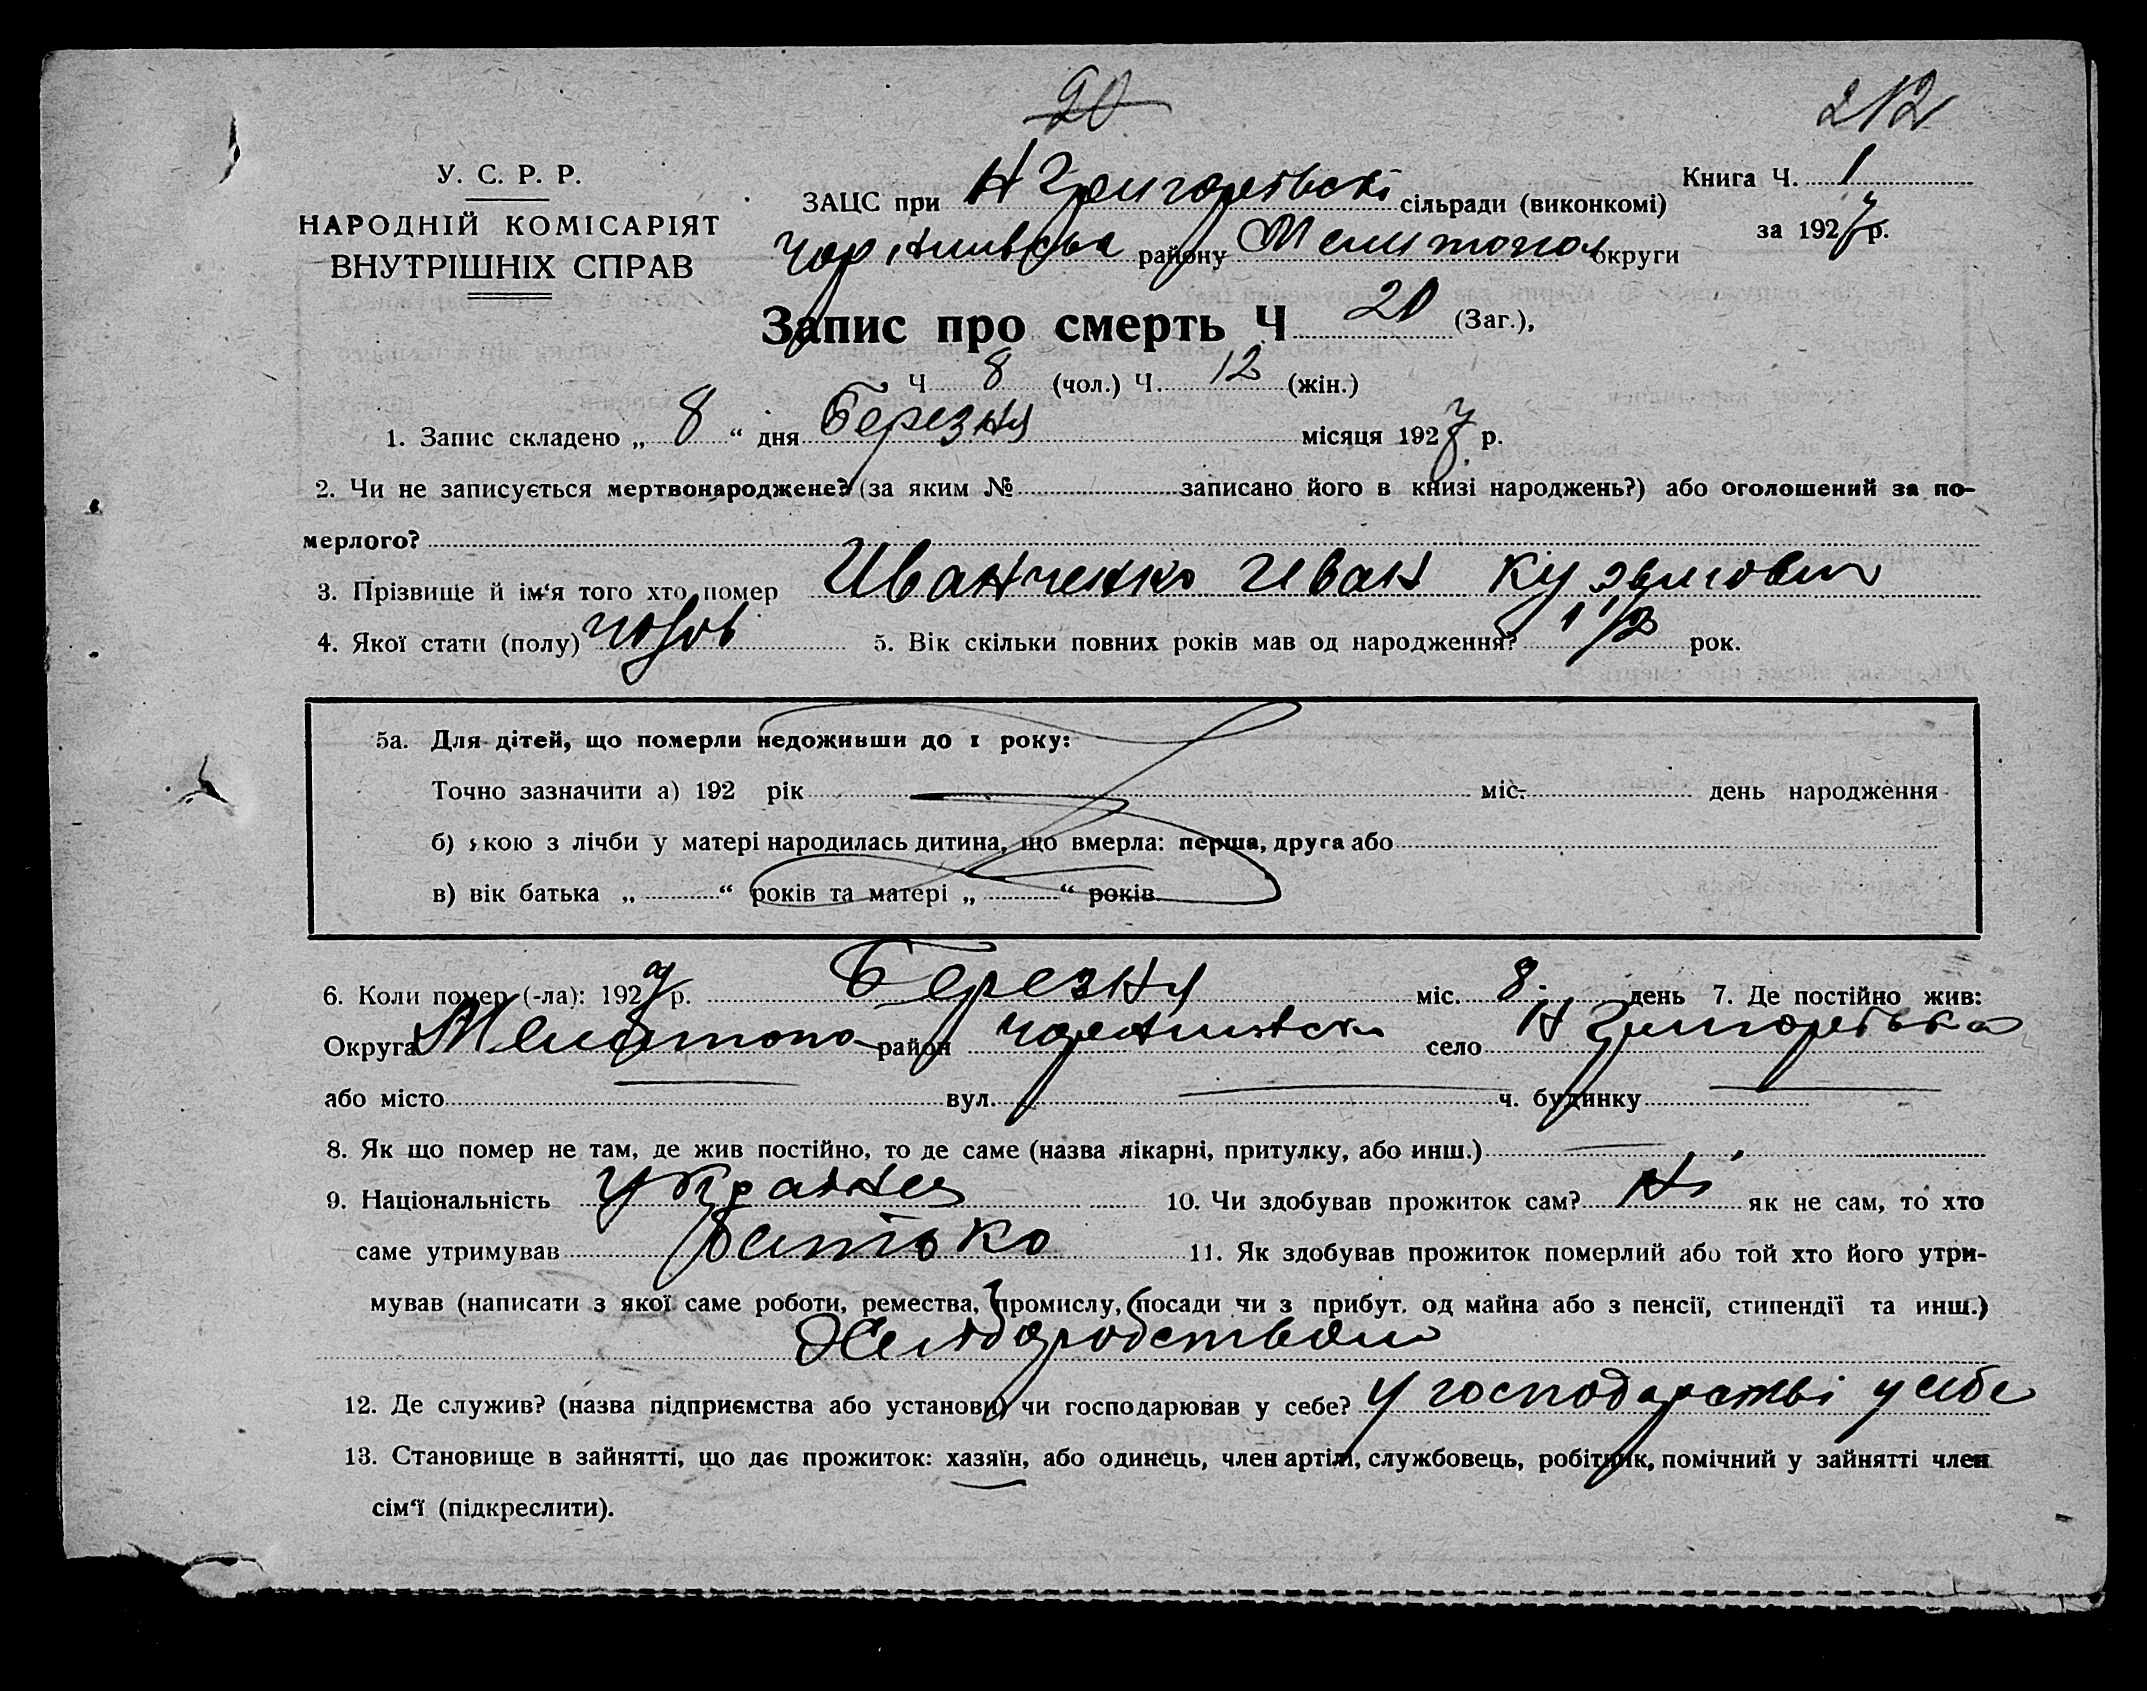 20
212
У. С. Р. Р.
НАРОДНІЙ КОМІСАРІЯТ
ВНУТРІШНІХ СПРАВ
ЗАЦС при сільради (виконкомі)
Книга Ч. 1
району Мелитопол округи
за 1927 р.
Запис про смерть Ч 20 (Заг.),
Ч 8 (чол.) Ч. 12 (жін.)
1. Запис складено „ 8 “ дня Березня місяця 1927 р.
2. Чи не записується мертвонароджене? (за яким № записано його в книзі народжень?) або оголошений за по-
мерлого?
3. Прізвище й ім‘я того хто помер Иванченко Иван Кузьмович
4. Якої стати (полу) чолов 5. Вік скільки повних років мав од народження? 1 1/2 рок.
5а. Для дітей, що померли недоживши до 1 року:
Точно зазначити а) 192 рік міс. день народження
б) якою з лічби у матері народилась дитина, що вмерла: перша, друга або
в) вік батька „ “ років та матері „ “ років
6. Коли помер (-ла): 1927 р. Березня міс. 8 день 7. Де постійно жив:
Округа Мелитопо район село
або місто вул. ч. будинку
8. Як що помер не там, де жив постійно, то де саме (назва лікарні, притулку, або инш.)
9. Національність 10. Чи здобував прожиток сам? Ні як не сам, то хто
саме утримував батько 11. Як здобував прожиток померлий або той хто його утри-
мував (написати з якої саме роботи, ремества, промислу, посади чи з прибут. од майна або з пенсії, стипендії та инш.)
12. Де служив? (назва підприємства або установи) чи господарював у себе? У господарстві у себе
13. Становище в зайнятті, що дає прожиток: хазяїн, або одинець, член артілі, службовець, робітник, помічний у зайнятті член
сім‘ї (підкреслити).